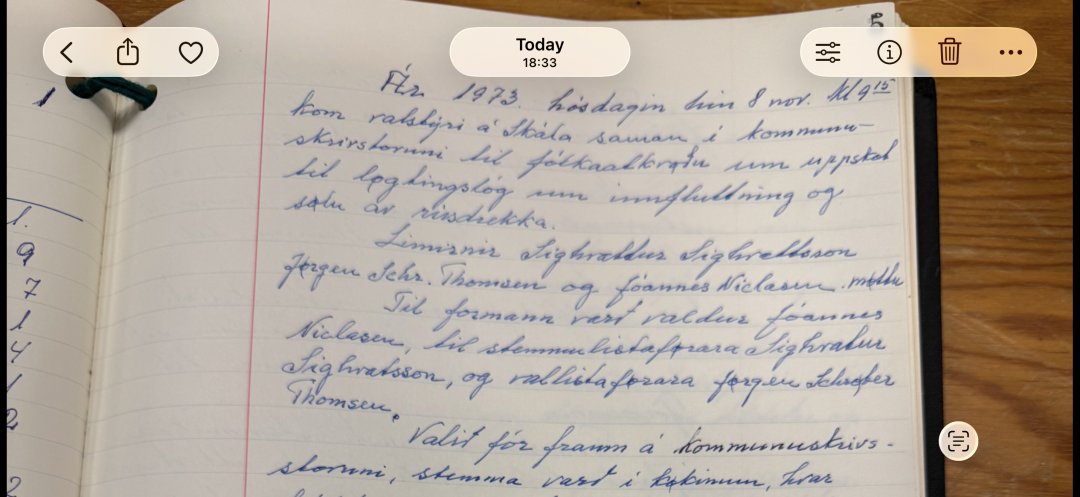 Today
18:33
5
Ár 1973. hósdagin hin 8 nov. kl 9 15
kom valstýri á Skála saman í kommunu-
skrivstovuni til fólkaatkvøðu um uppskot
til løgtingslóg um innflutning og
sølu av rúsdrekka.
Limirnir Sighvatur Sighvatsson
Jørgen Schr. Thomsen og Jóannes Niclasen. møttu
Til formann varð valdur Jóannes
Niclasen, til stemmulistaførara Sighvatur
Sighvatsson, og vallistaførara Jørgen Schrøter
Thomsen.
Valið fór fram á kommunuskrivs-
stovuni, stemma varð í køkinum, hvar
1
1.
9
7
1
4
1
2
2